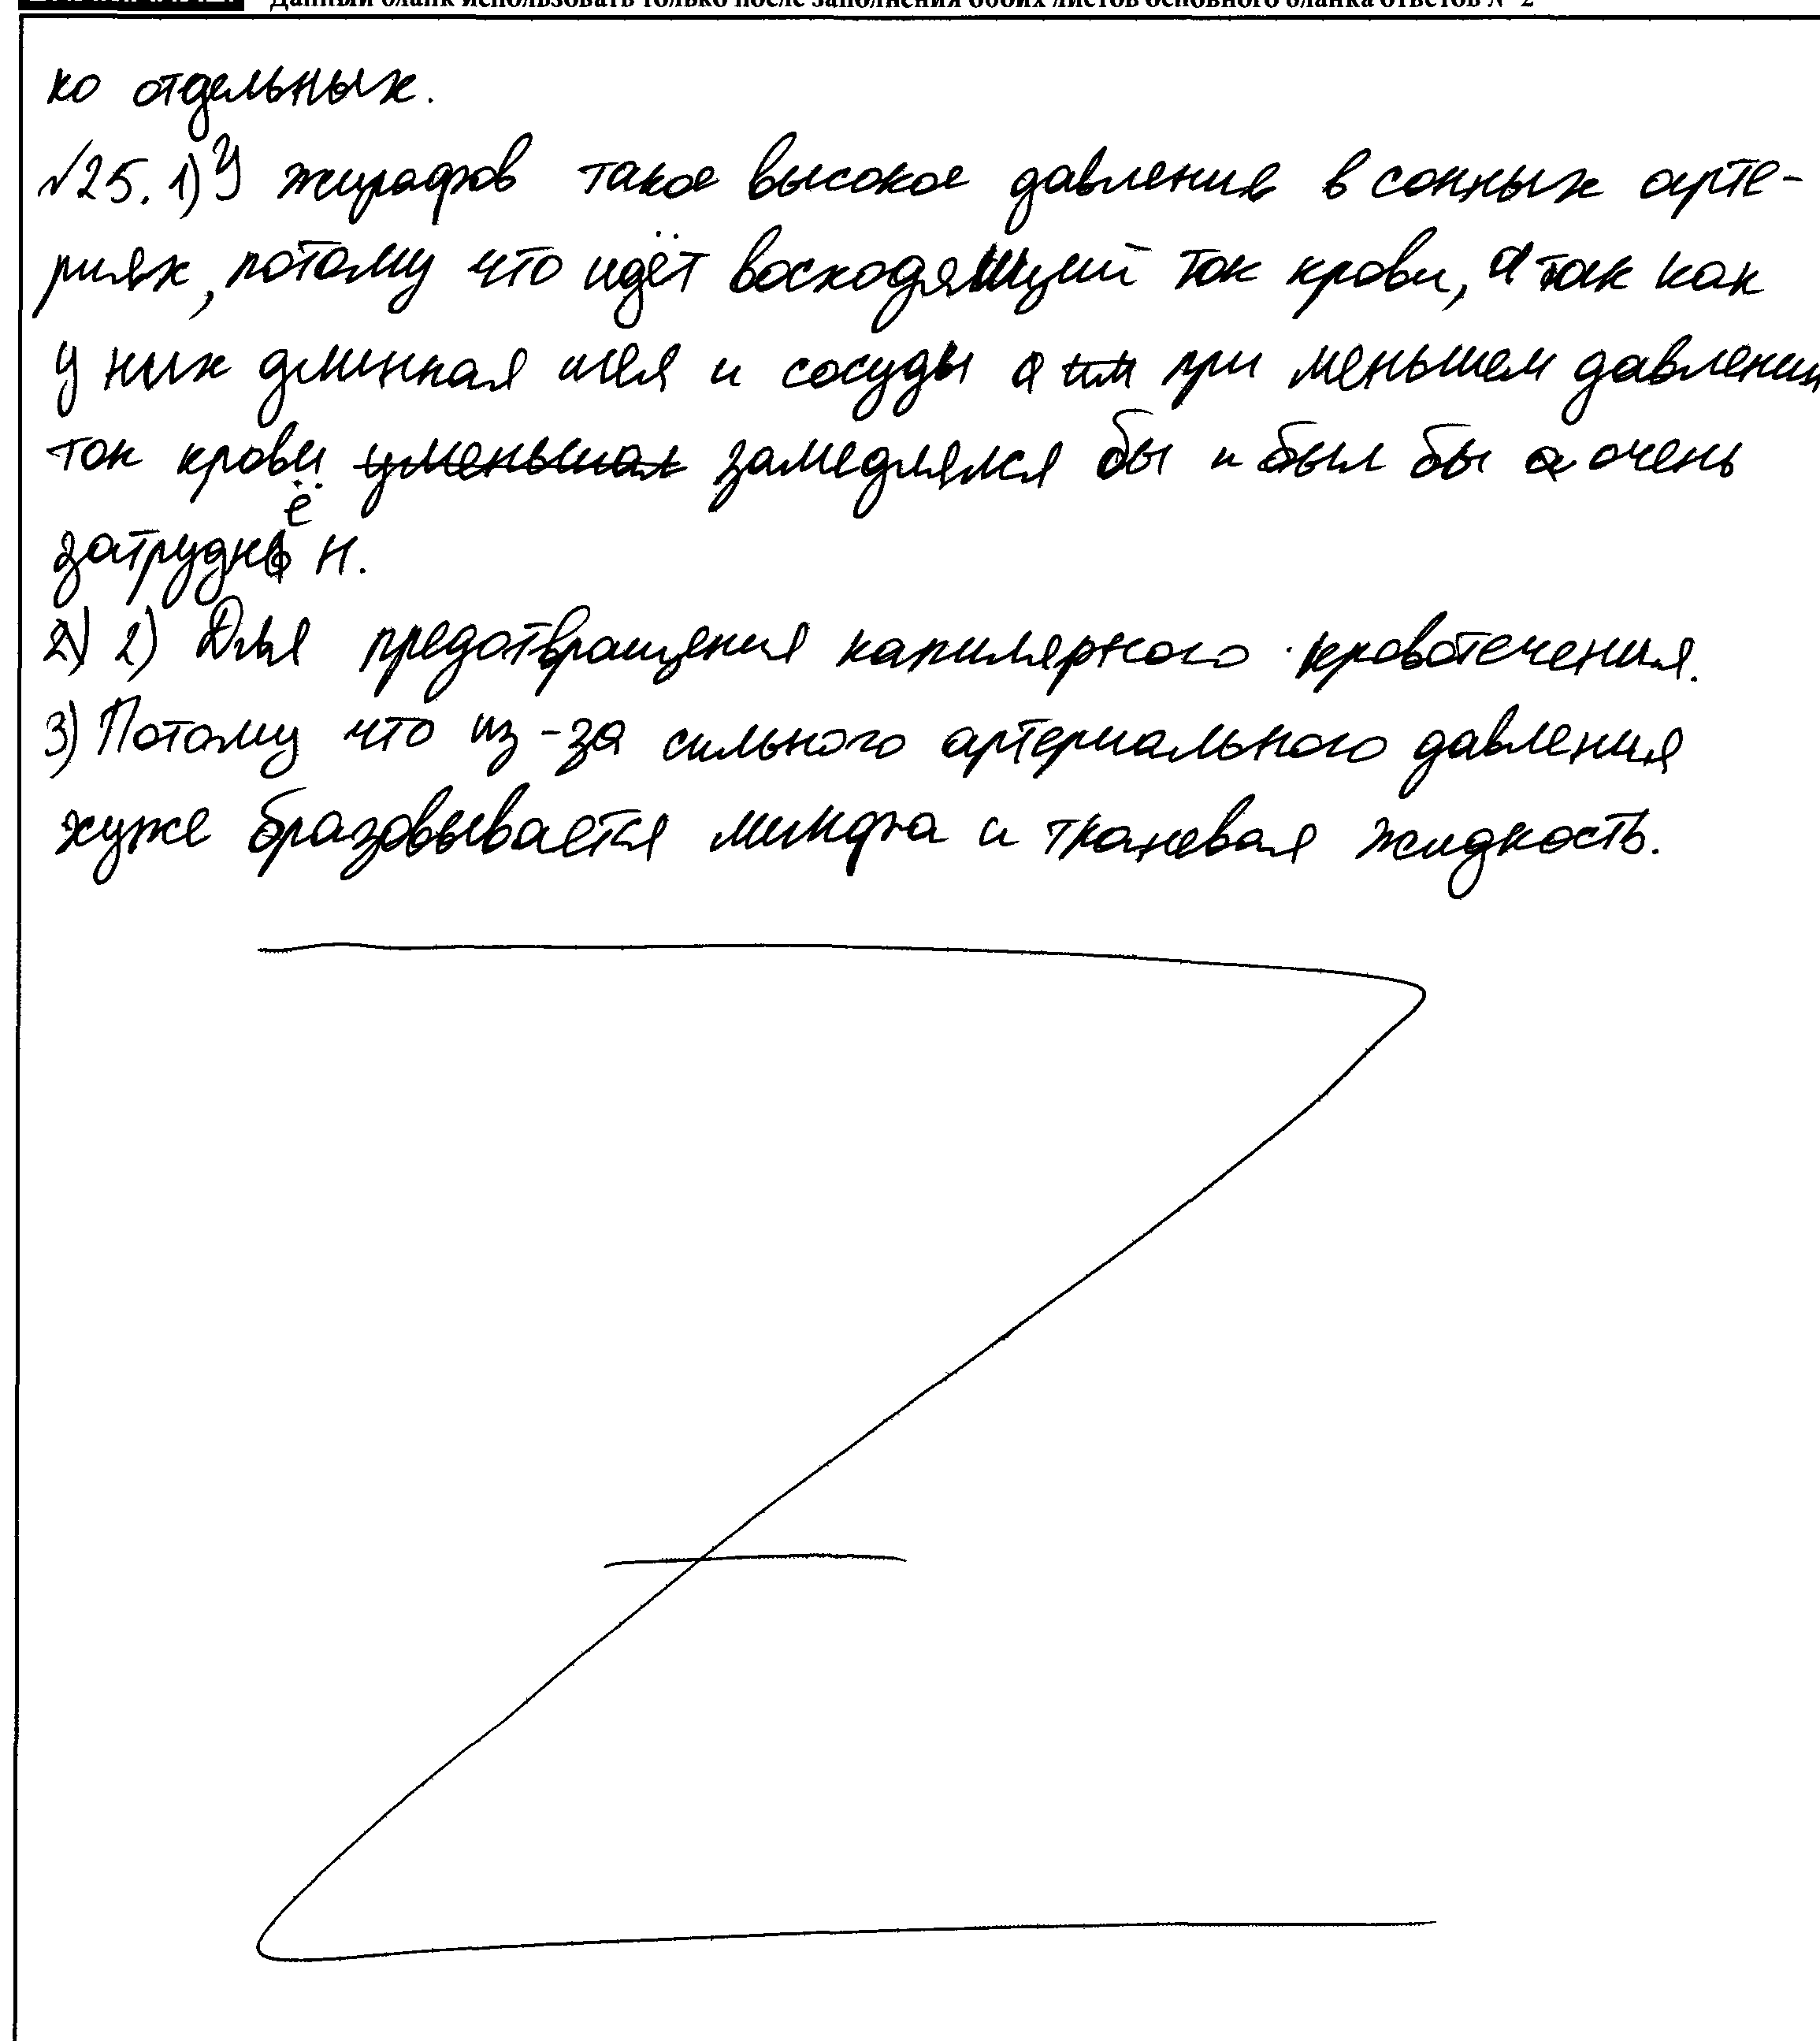 Данный бланк использовать только после заполнения обоих листов основного бланка ответов № 2
ко отдельных.
№25. 1) У жирафов такое высокое давление в сонных арте-
риях, потому что идёт восходящий ток крови, а так как
у них длинная шея и сосуды а им при меньшем давлении
ток крови уменьшал замедлялся бы и был бы а очень
затруднён.
2) 2) Для предотвращения капилярного кровотечения.
3) Потому что из-за сильного артериального давления
хуже бразовывается лимфа и тканевая жидкость.